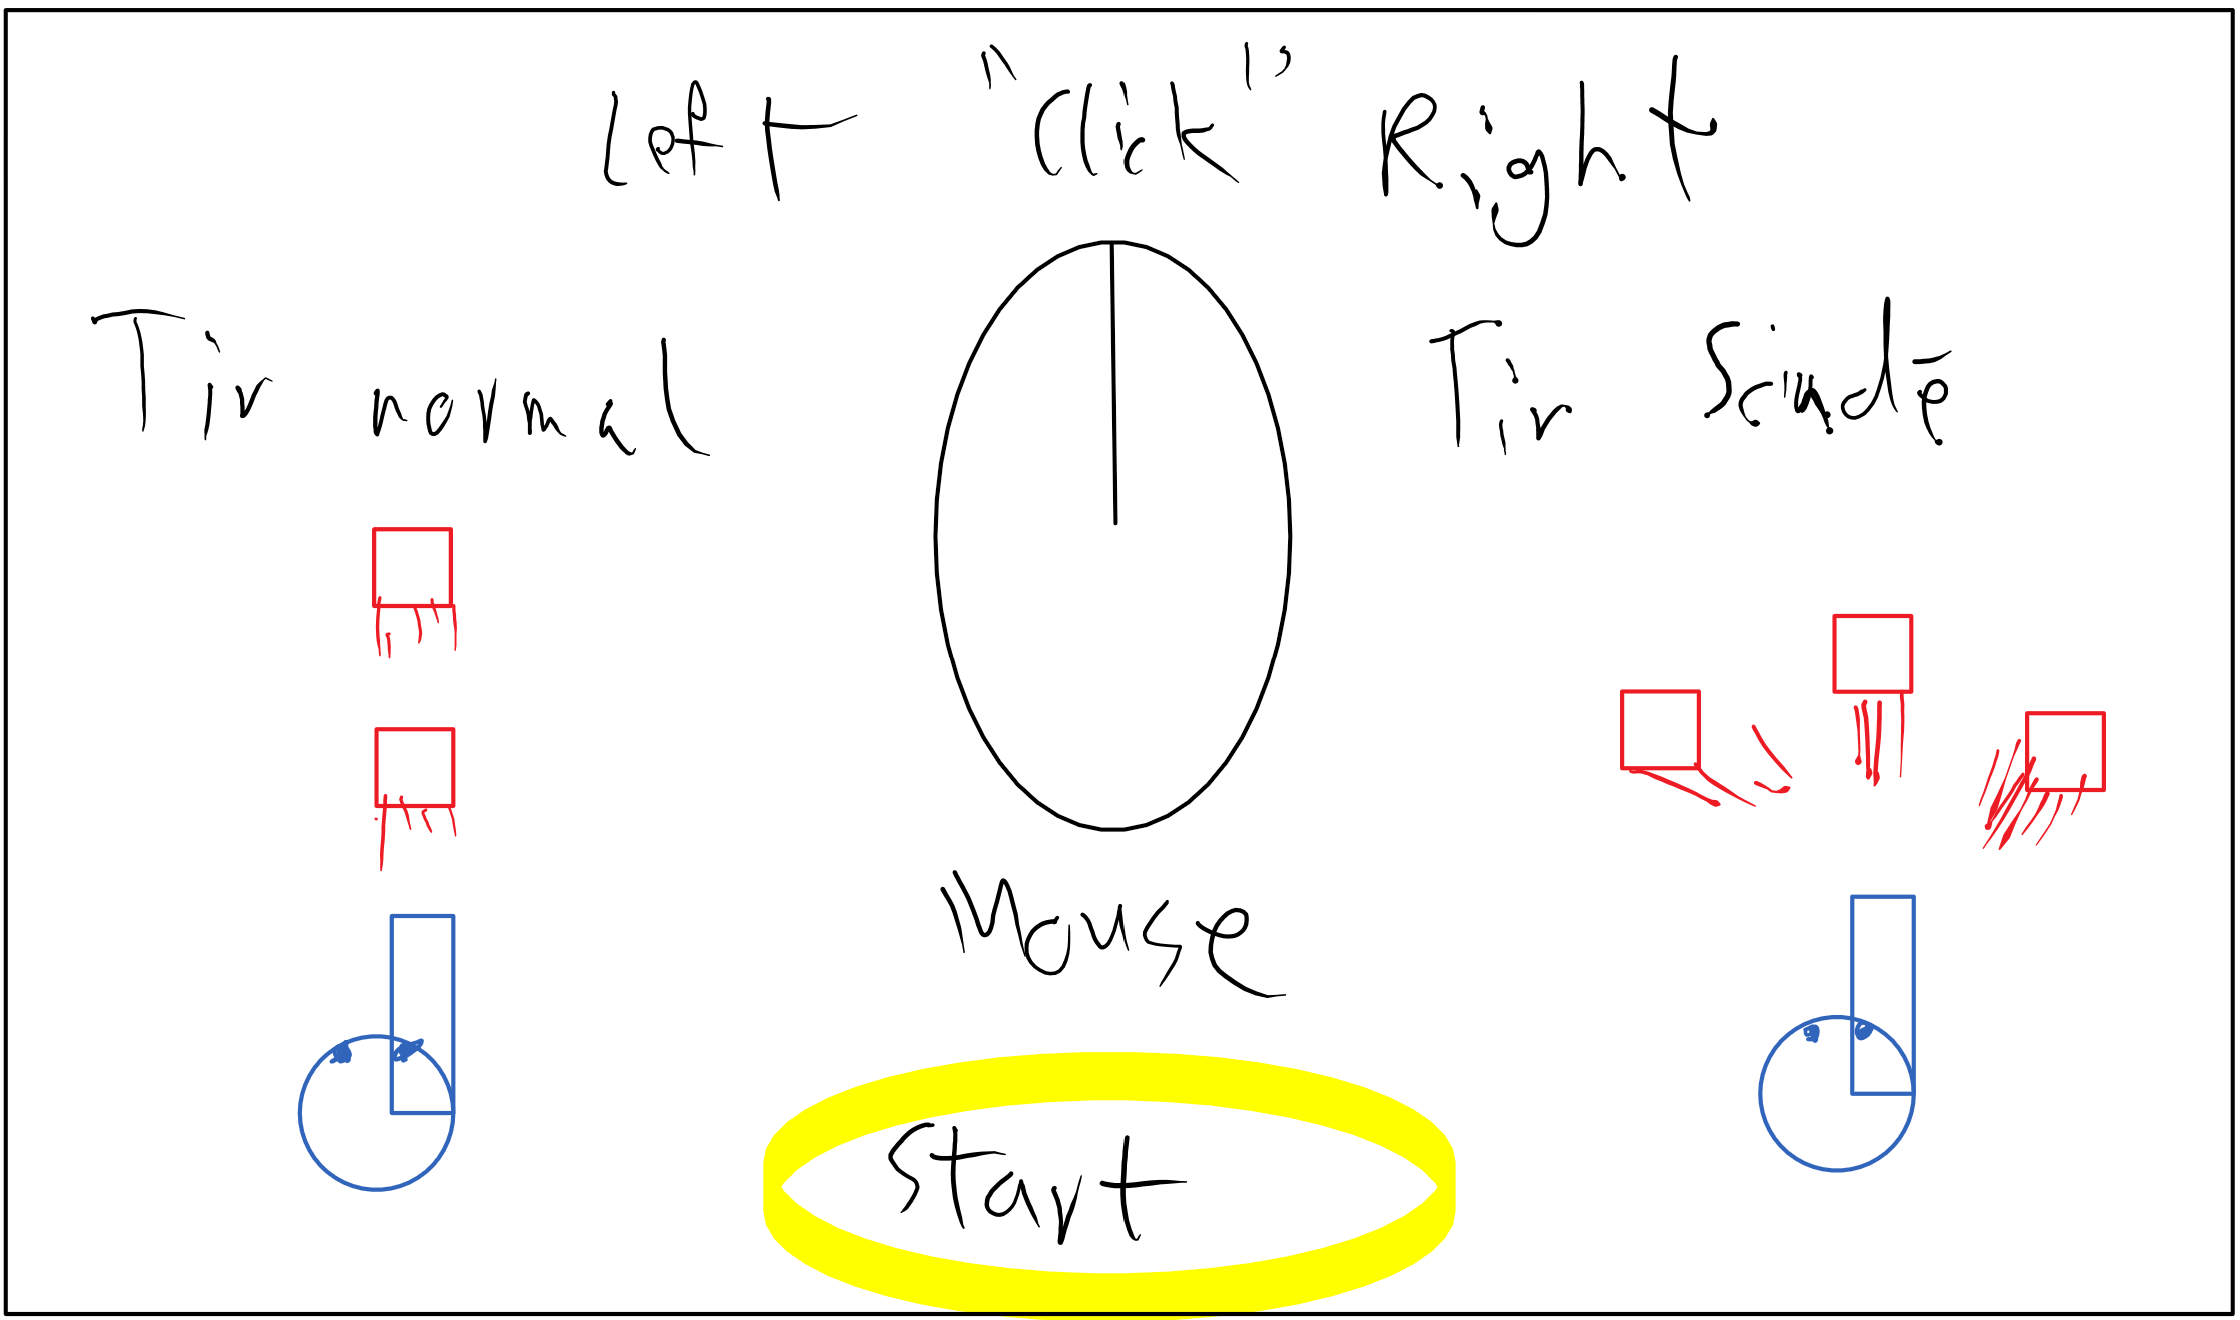 Left "Click" Right
Tir normal
Tir Scindé
Mouse
Start